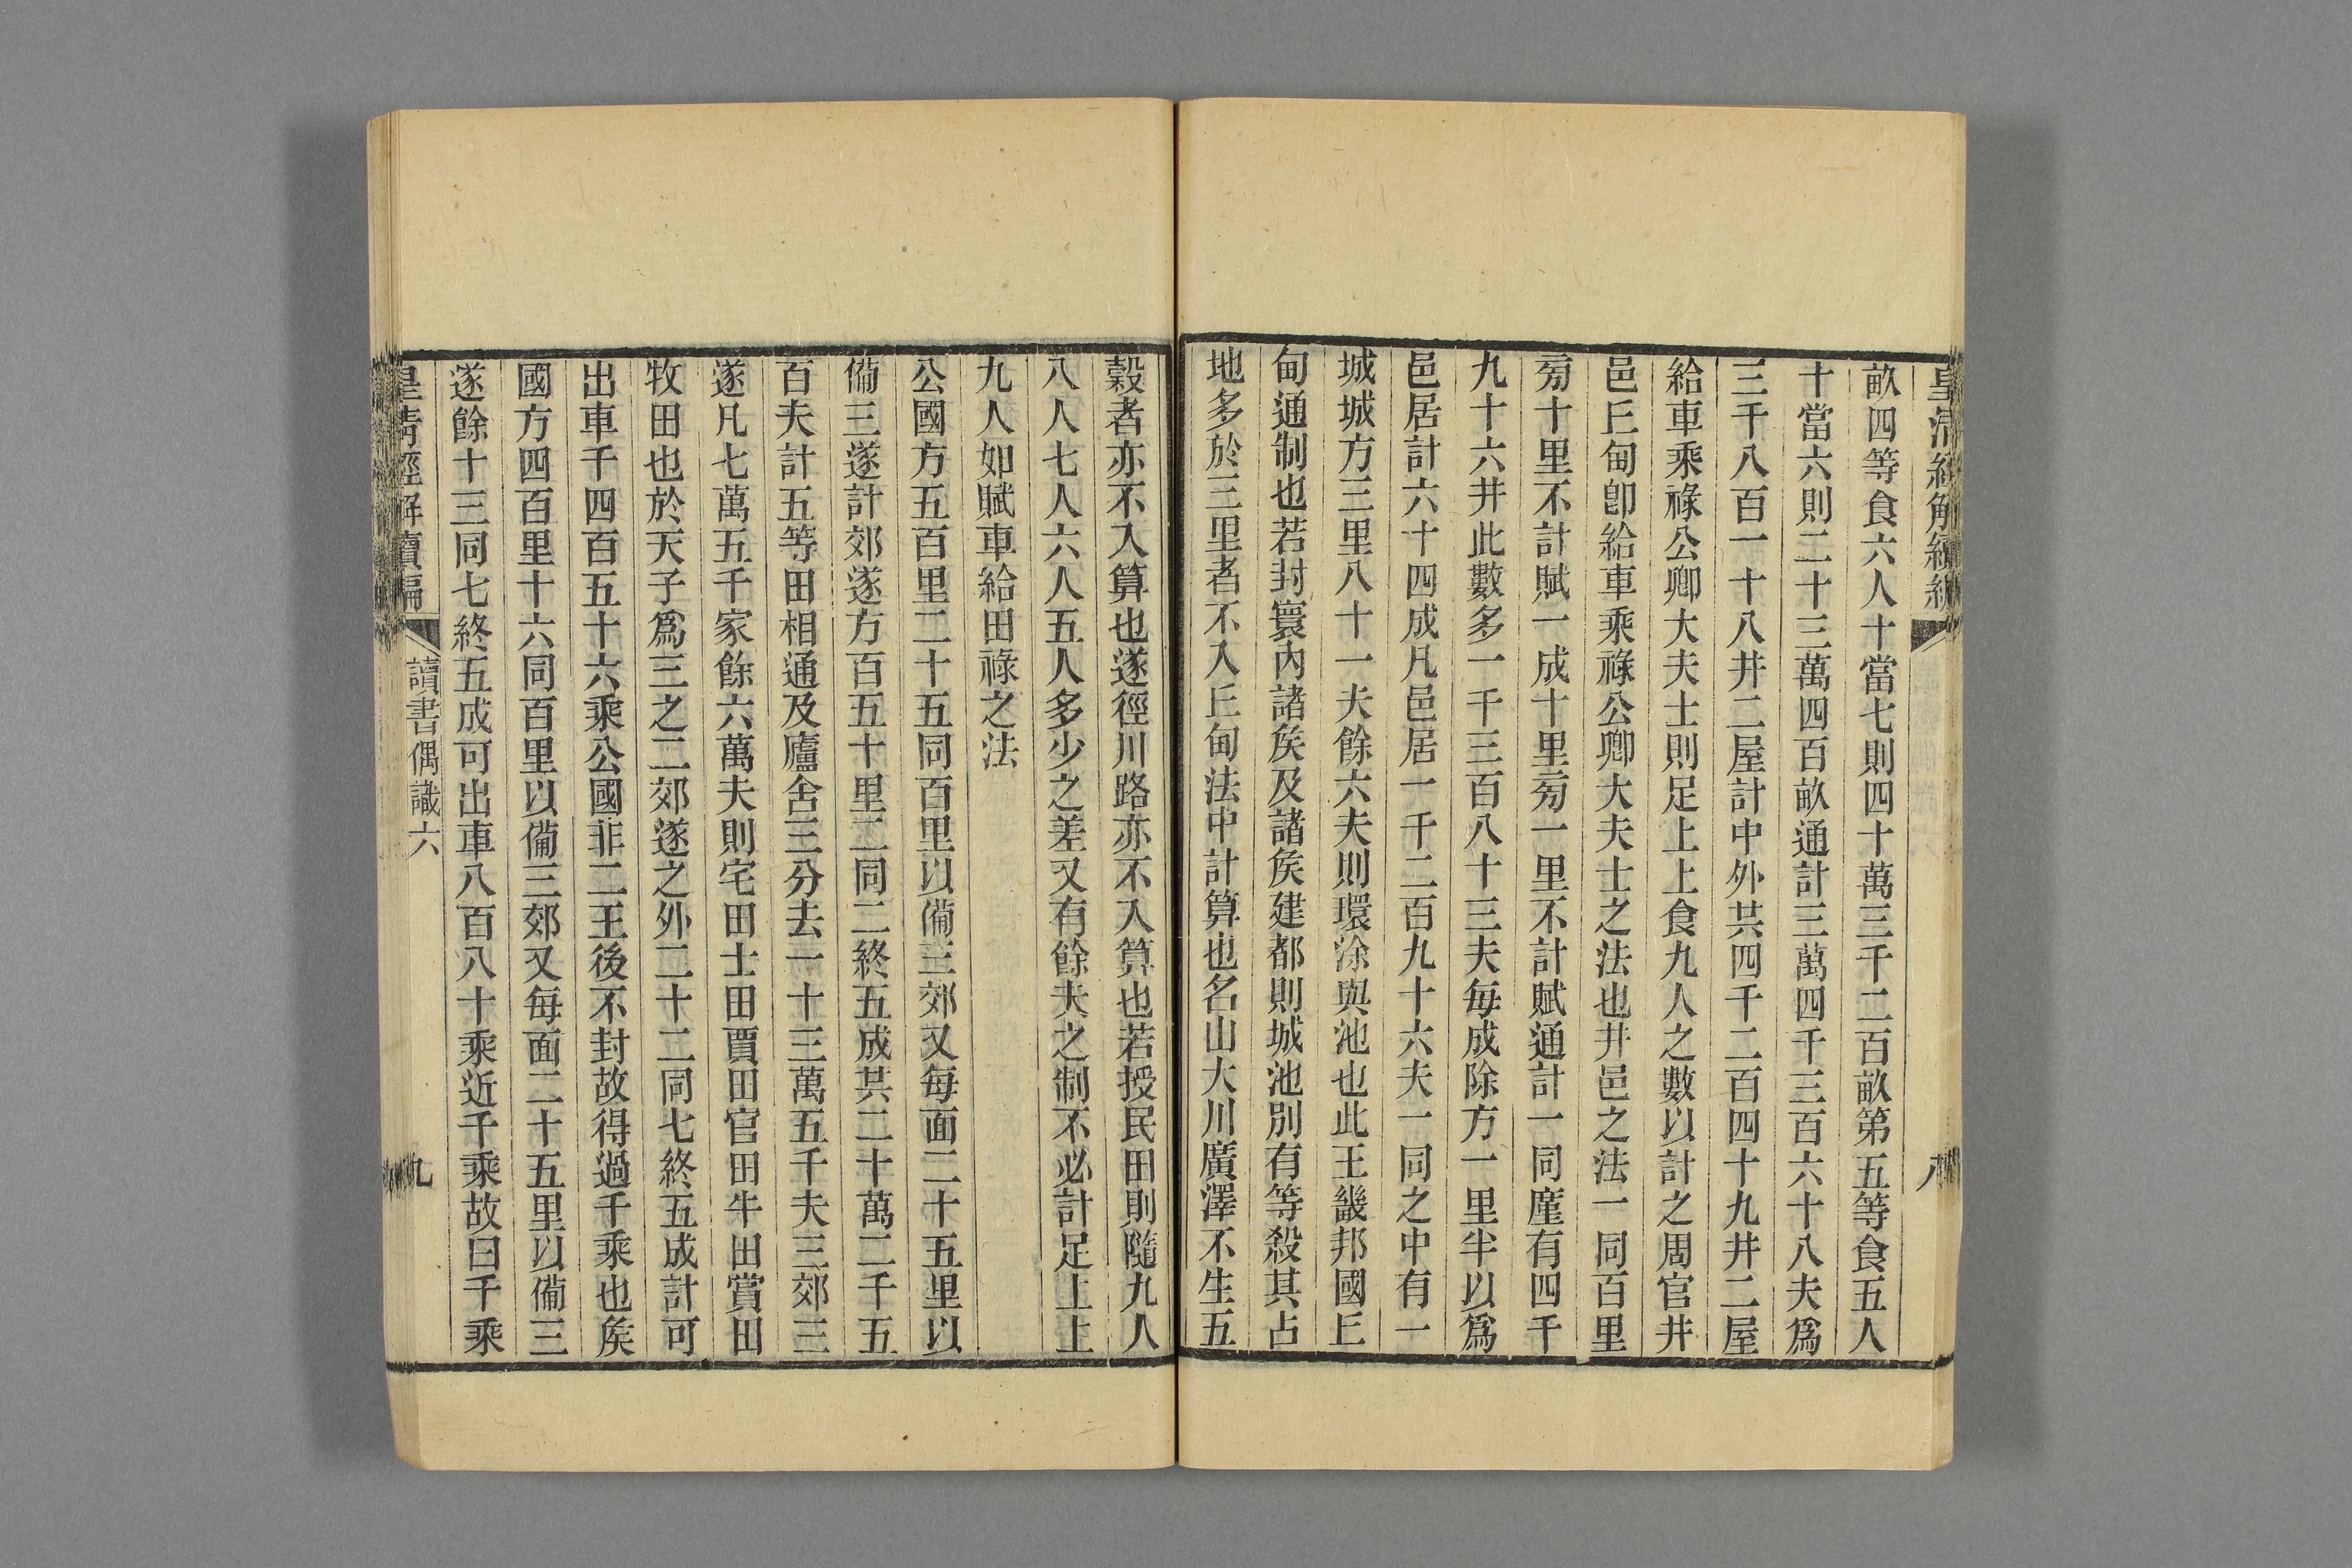 皇清經解續編
八
畝四等食六人十當七則四十萬三千二百畝第五等食五人
十當六則二十三萬四百畝通計三萬四千三百六十八夫爲
三千八百一十八井二屋計中外共四千二百四十九井二屋
給車乘祿公卿大夫士則足上上食九人之數以計之周官井
邑丘甸卽給車乘祿公卿大夫士之法也井邑之法一同百里
旁十里不計賦一成十里旁一里不計賦通計一同廛有四千
九十六井此數多一千三百八十三夫每成除方一里半以爲
邑居計六十四成凡邑居一千二百九十六夫一同之中有一
城城方三里八十一夫餘六夫則環涂與池也此王畿邦國丘
甸通制也若封寰內諸矦及諸矦建都則城池別有等殺其占
地多於三里者不入丘甸法中計算也名山大川廣澤不生五
穀者亦不入算也遂徑川路亦不入算也若授民田則隨九人
八人七人六人五人多少之差又有餘夫之制不必計足上上
九人如賦車給田祿之法
公國方五百里二十五同百里以備三郊又每面二十五里以
備三遂計郊遂方百五十里二同二終五成共二十萬二千五
百夫計五等田相通及廬舍三分去一十三萬五千夫三郊三
遂凡七萬五千家餘六萬夫則宅田士田賈田官田牛田賞田
牧田也於天子爲三之二郊遂之外二十二同七終五成計可
出車千四百五十六乘公國非二王後不封故得過千乘也矦
國方四百里十六同百里以備三郊又每面二十五里以備三
遂餘十三同七終五成可出車八百八十乘近千乘故曰千乘
皇清經解續編
讀書偶識六
九